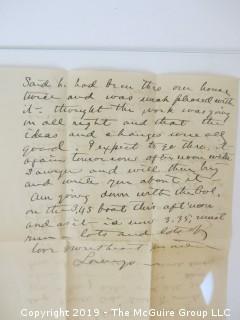 Said h. had been thro our house
twice and was much pleased with
it - thought the work was going
on all right and that the
ideas and changes were all
good. I expect to go thro. it
again tomorrow afternoon with
Sawyer and will then try
and write you about it
Am going down with the Col.
on the 3,45 boat this aft'noon
and as it is now 3.35, must
run - lots and lots of
love sweetheart
Lorenzo
Copyright © 2019 - The McGuire Group LLC